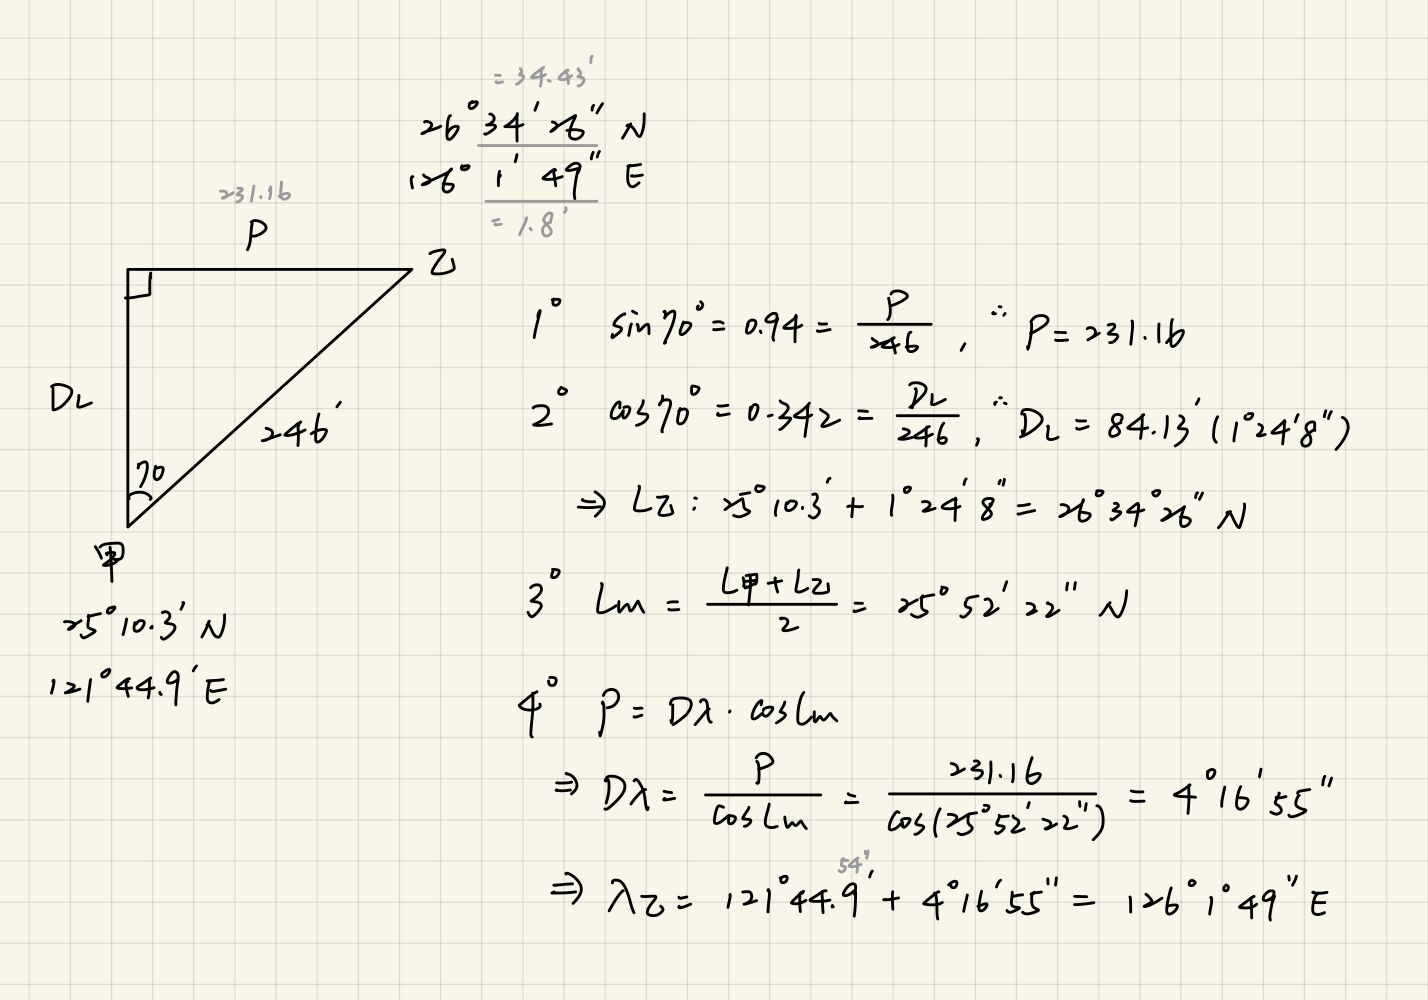 = 34.43'
26° 34' 26" N
126° 1' 49" E
= 1.8'
231.16
P
乙
DL
246'
70
甲
25°10.3' N
121°44.9' E
1° sin70° = 0.94 = P/246 , ∴ P = 231.16
2° cos70° = 0.342 = DL/246 , ∴ DL = 84.13' (1°24'8")
⇒ L乙 : 25°10.3' + 1°24'8" = 26°34°26" N
3° Lm = (L甲 + L乙)/2 = 25°52'22" N
4° P = Dλ · cosLm
⇒ Dλ = P/cosLm = 231.16/cos(25°52'22") = 4°16'55"
54"
⇒ λ乙 = 121°44.9' + 4°16'55" = 126°1°49" E